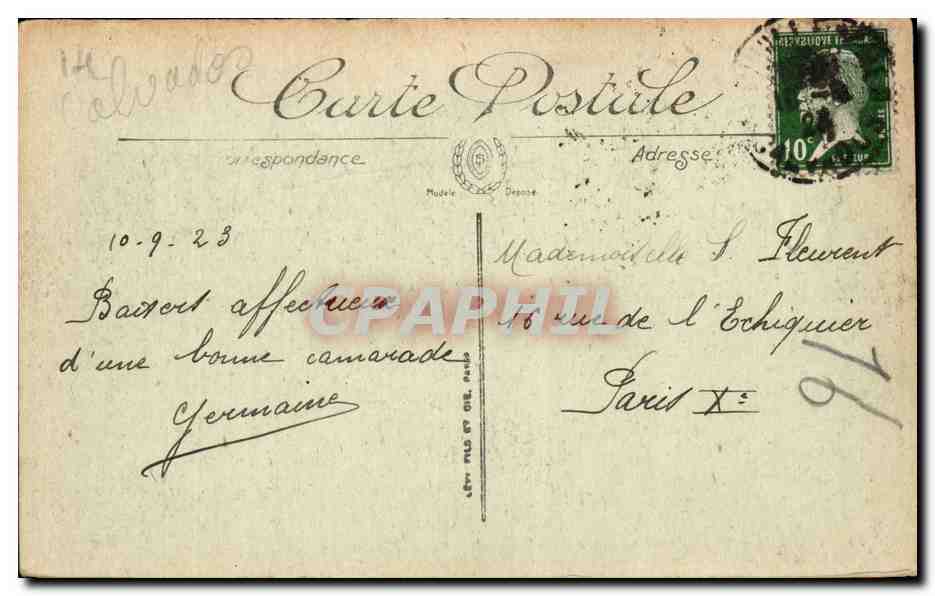 14
Calvados
Carte Postale
Correspondance
Adresse
Modèle Déposé
10c
10-9-23
Baisers affectueux
d'une bonne camarade
Germaine
Mademoiselle S. Fleurent
16 rue de l'Echiquier
Paris Xe
LÉVY FILS ET CIE. PARIS
CPAPHIL